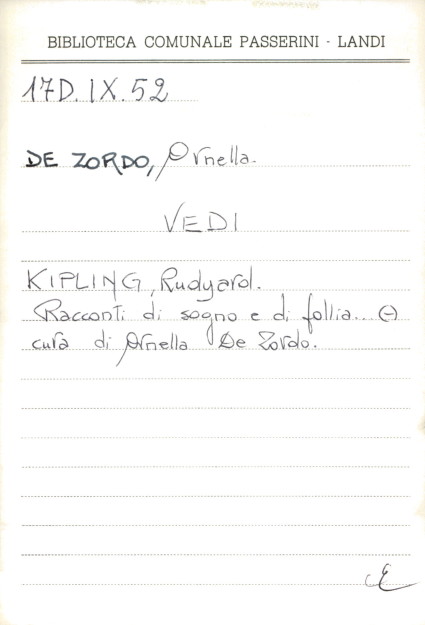 BIBLIOTECA COMUNALE PASSERINI - LANDI
17D.IX.52
DE ZORDO, Ornella.
VEDI
KIPLING, Rudyard.
Racconti di sogno e di follia... A
cura di Ornella De Zordo.